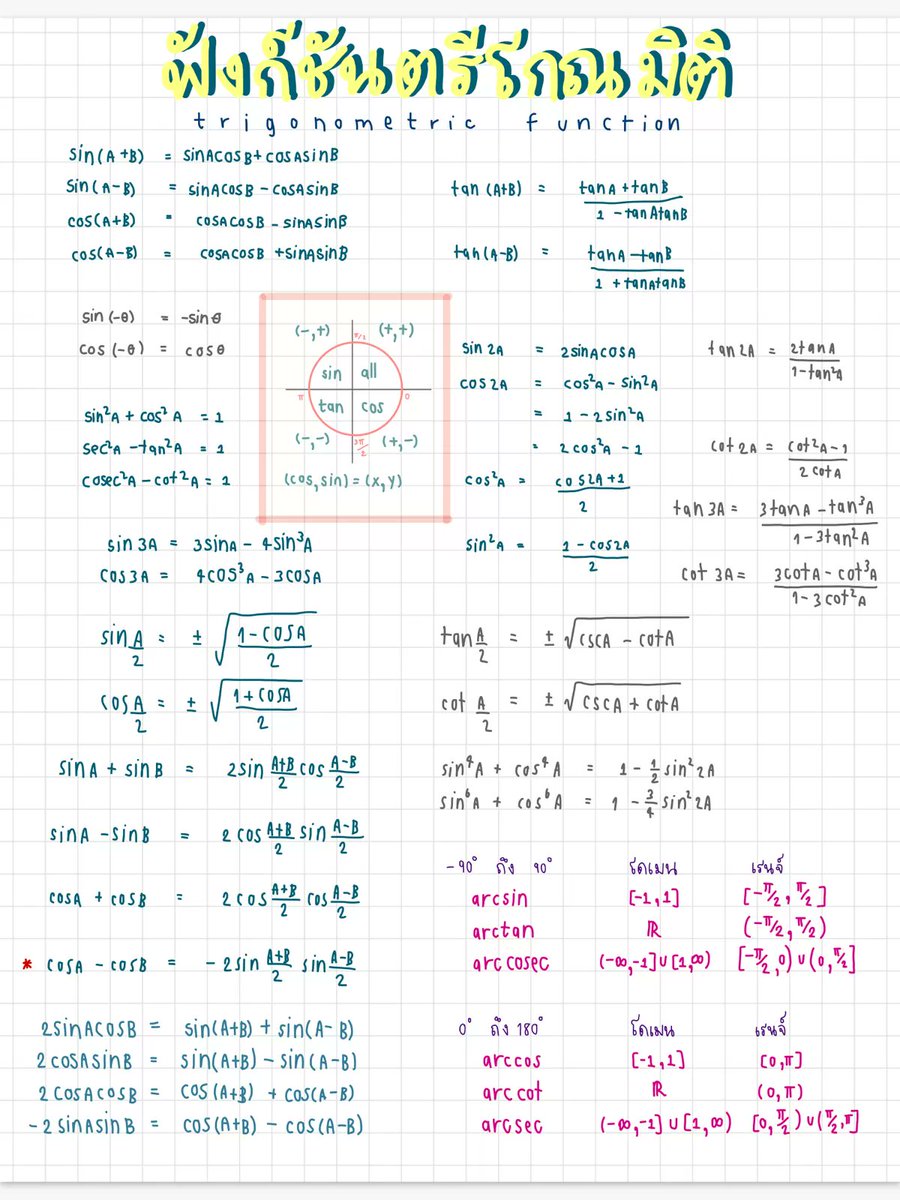 ฟังก์ชันตรีโกณมิติ
trigonometric function
sin(A+B) = sinAcosB+cosAsinB
sin(A-B) = sinAcosB-cosAsinB
cos(A+B) = cosAcosB-sinAsinB
cos(A-B) = cosAcosB+sinAsinB
tan(A+B) = (tanA+tanB)/(1-tanAtanB)
tan(A-B) = (tanA-tanB)/(1+tanAtanB)
sin(-θ) = -sinθ
cos(-θ) = cosθ
sin²A+cos²A = 1
sec²A-tan²A = 1
cosec²A-cot²A = 1
(-,+) π/2 (+,+)
sin all
π 0
tan cos
(-,-) 3π/2 (+,-)
(cos,sin)=(x,y)
sin2A = 2sinAcosA
cos2A = cos²A-sin²A
= 1-2sin²A
= 2cos²A-1
cos²A = (cos2A+1)/2
sin²A = (1-cos2A)/2
tan2A = 2tanA/(1-tan²A)
cot2A = (cot²A-1)/(2cotA)
tan3A = (3tanA-tan³A)/(1-3tan²A)
cot3A = (3cotA-cot³A)/(1-3cot²A)
sin3A = 3sinA-4sin³A
cos3A = 4cos³A-3cosA
sin A/2 = ±√((1-cosA)/2)
cos A/2 = ±√((1+cosA)/2)
tan A/2 = ±√(cscA-cotA)
cot A/2 = ±√(cscA+cotA)
sinA+sinB = 2sin (A+B)/2 cos (A-B)/2
sinA-sinB = 2cos (A+B)/2 sin (A-B)/2
cosA+cosB = 2cos (A+B)/2 cos (A-B)/2
* cosA-cosB = -2sin (A+B)/2 sin (A-B)/2
sin⁴A + cos⁴A = 1-1/2 sin²2A
sin⁶A + cos⁶A = 1-3/4 sin²2A
-90° ถึง 90° โดเมน เรนจ์
arcsin [-1,1] [-π/2,π/2]
arctan ℝ (-π/2,π/2)
arccosec (-∞,-1]∪[1,∞) [-π/2,0)∪(0,π/2]
2sinAcosB = sin(A+B)+sin(A-B)
2cosAsinB = sin(A+B)-sin(A-B)
2cosAcosB = cos(A+B)+cos(A-B)
-2sinAsinB = cos(A+B)-cos(A-B)
0° ถึง 180° โดเมน เรนจ์
arccos [-1,1] [0,π]
arccot ℝ (0,π)
arcsec (-∞,-1]∪[1,∞) [0,π/2)∪(π/2,π]